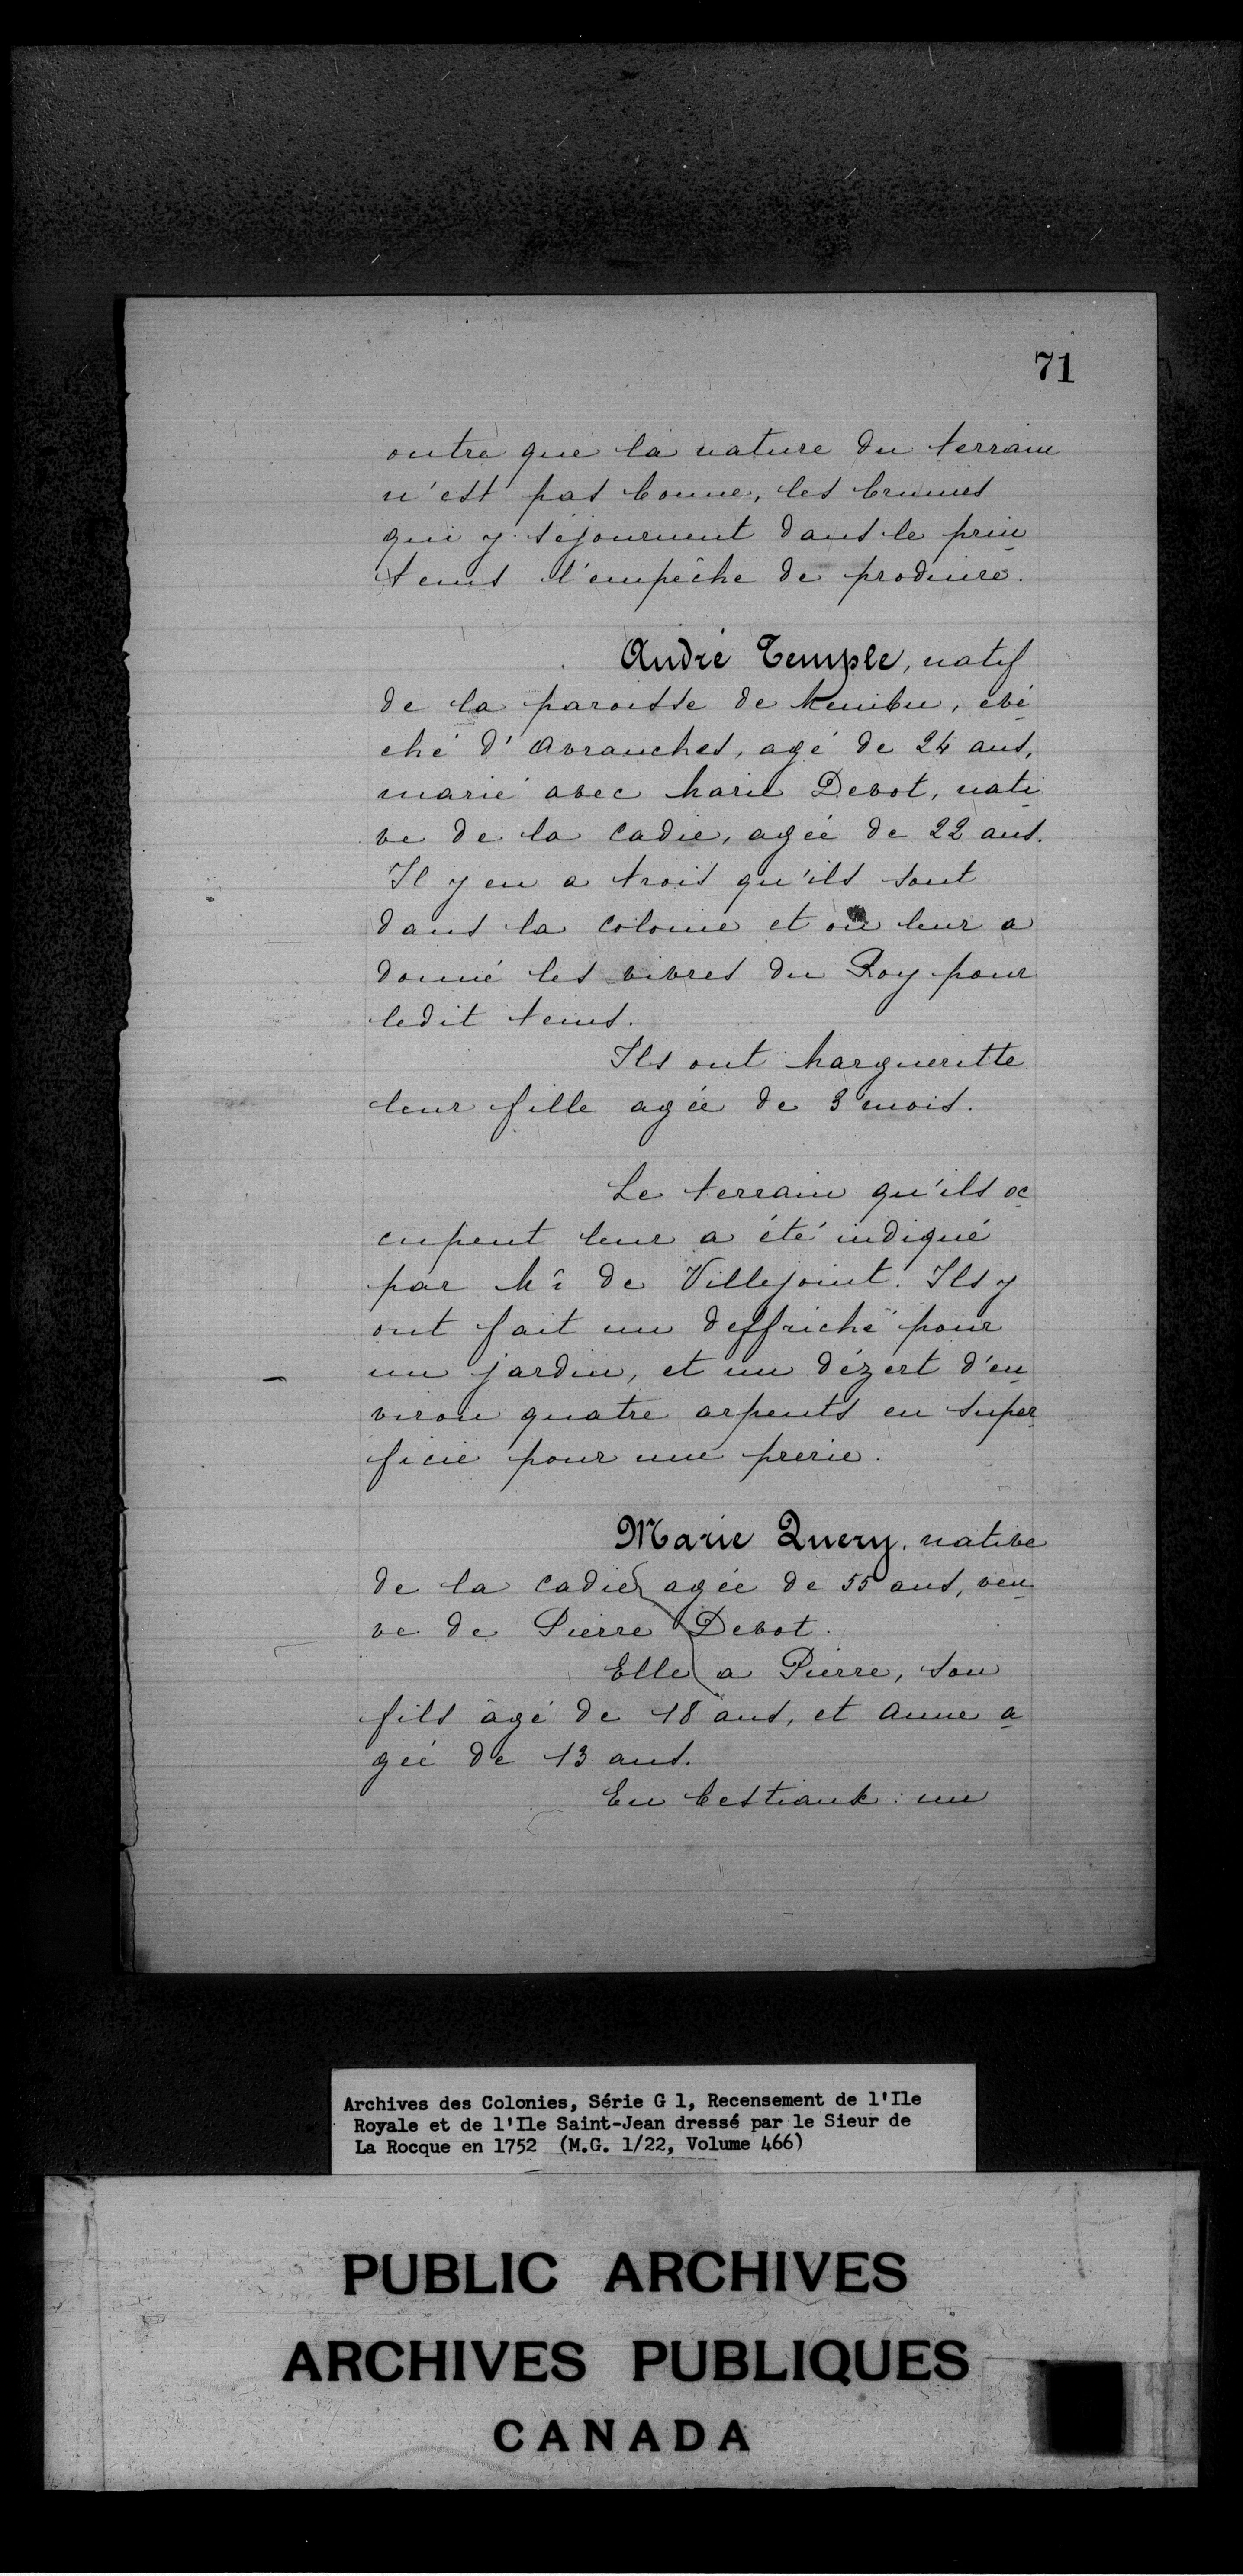 71
outre que la nature du terrain
n'est pas bonne, les brumes
qui y séjournent dans le prin
tems l'empêche de produire.
André Temple, natif
de la paroisse de Menibu, evê
ché d'Avranches, agé de 24 ans,
marié avec Marie Devot, nati
ve de la Cadie, agée de 22 ans.
Il y en a trois qu'ils sont
dans la colonie et on leur a
donné les vivres du Roy pour
ledit tems.
Ils ont Margueritte
leur fille agée de 3 mois.
Le terrain qu'ils oc
cupent leur a été indiqué
par Mr de Villejoint. Ils y
ont fait un deffriché pour
un jardin, et un dézert d'en
viron quatre arpents en super
ficie pour une prerie.
Marie Query, native
de la Cadie agée de 55 ans, veu
ve de Pierre Devot.
Elle a Pierre, son
fils âgé de 18 ans, et Anne a
gée de 13 ans.
En bestiaux : un
Archives des Colonies, Série G 1, Recensement de l'Ile
Royale et de l'Ile Saint-Jean dressé par le Sieur de
La Rocque en 1752 (M.G. 1/22, Volume 466)
PUBLIC ARCHIVES
ARCHIVES PUBLIQUES
CANADA